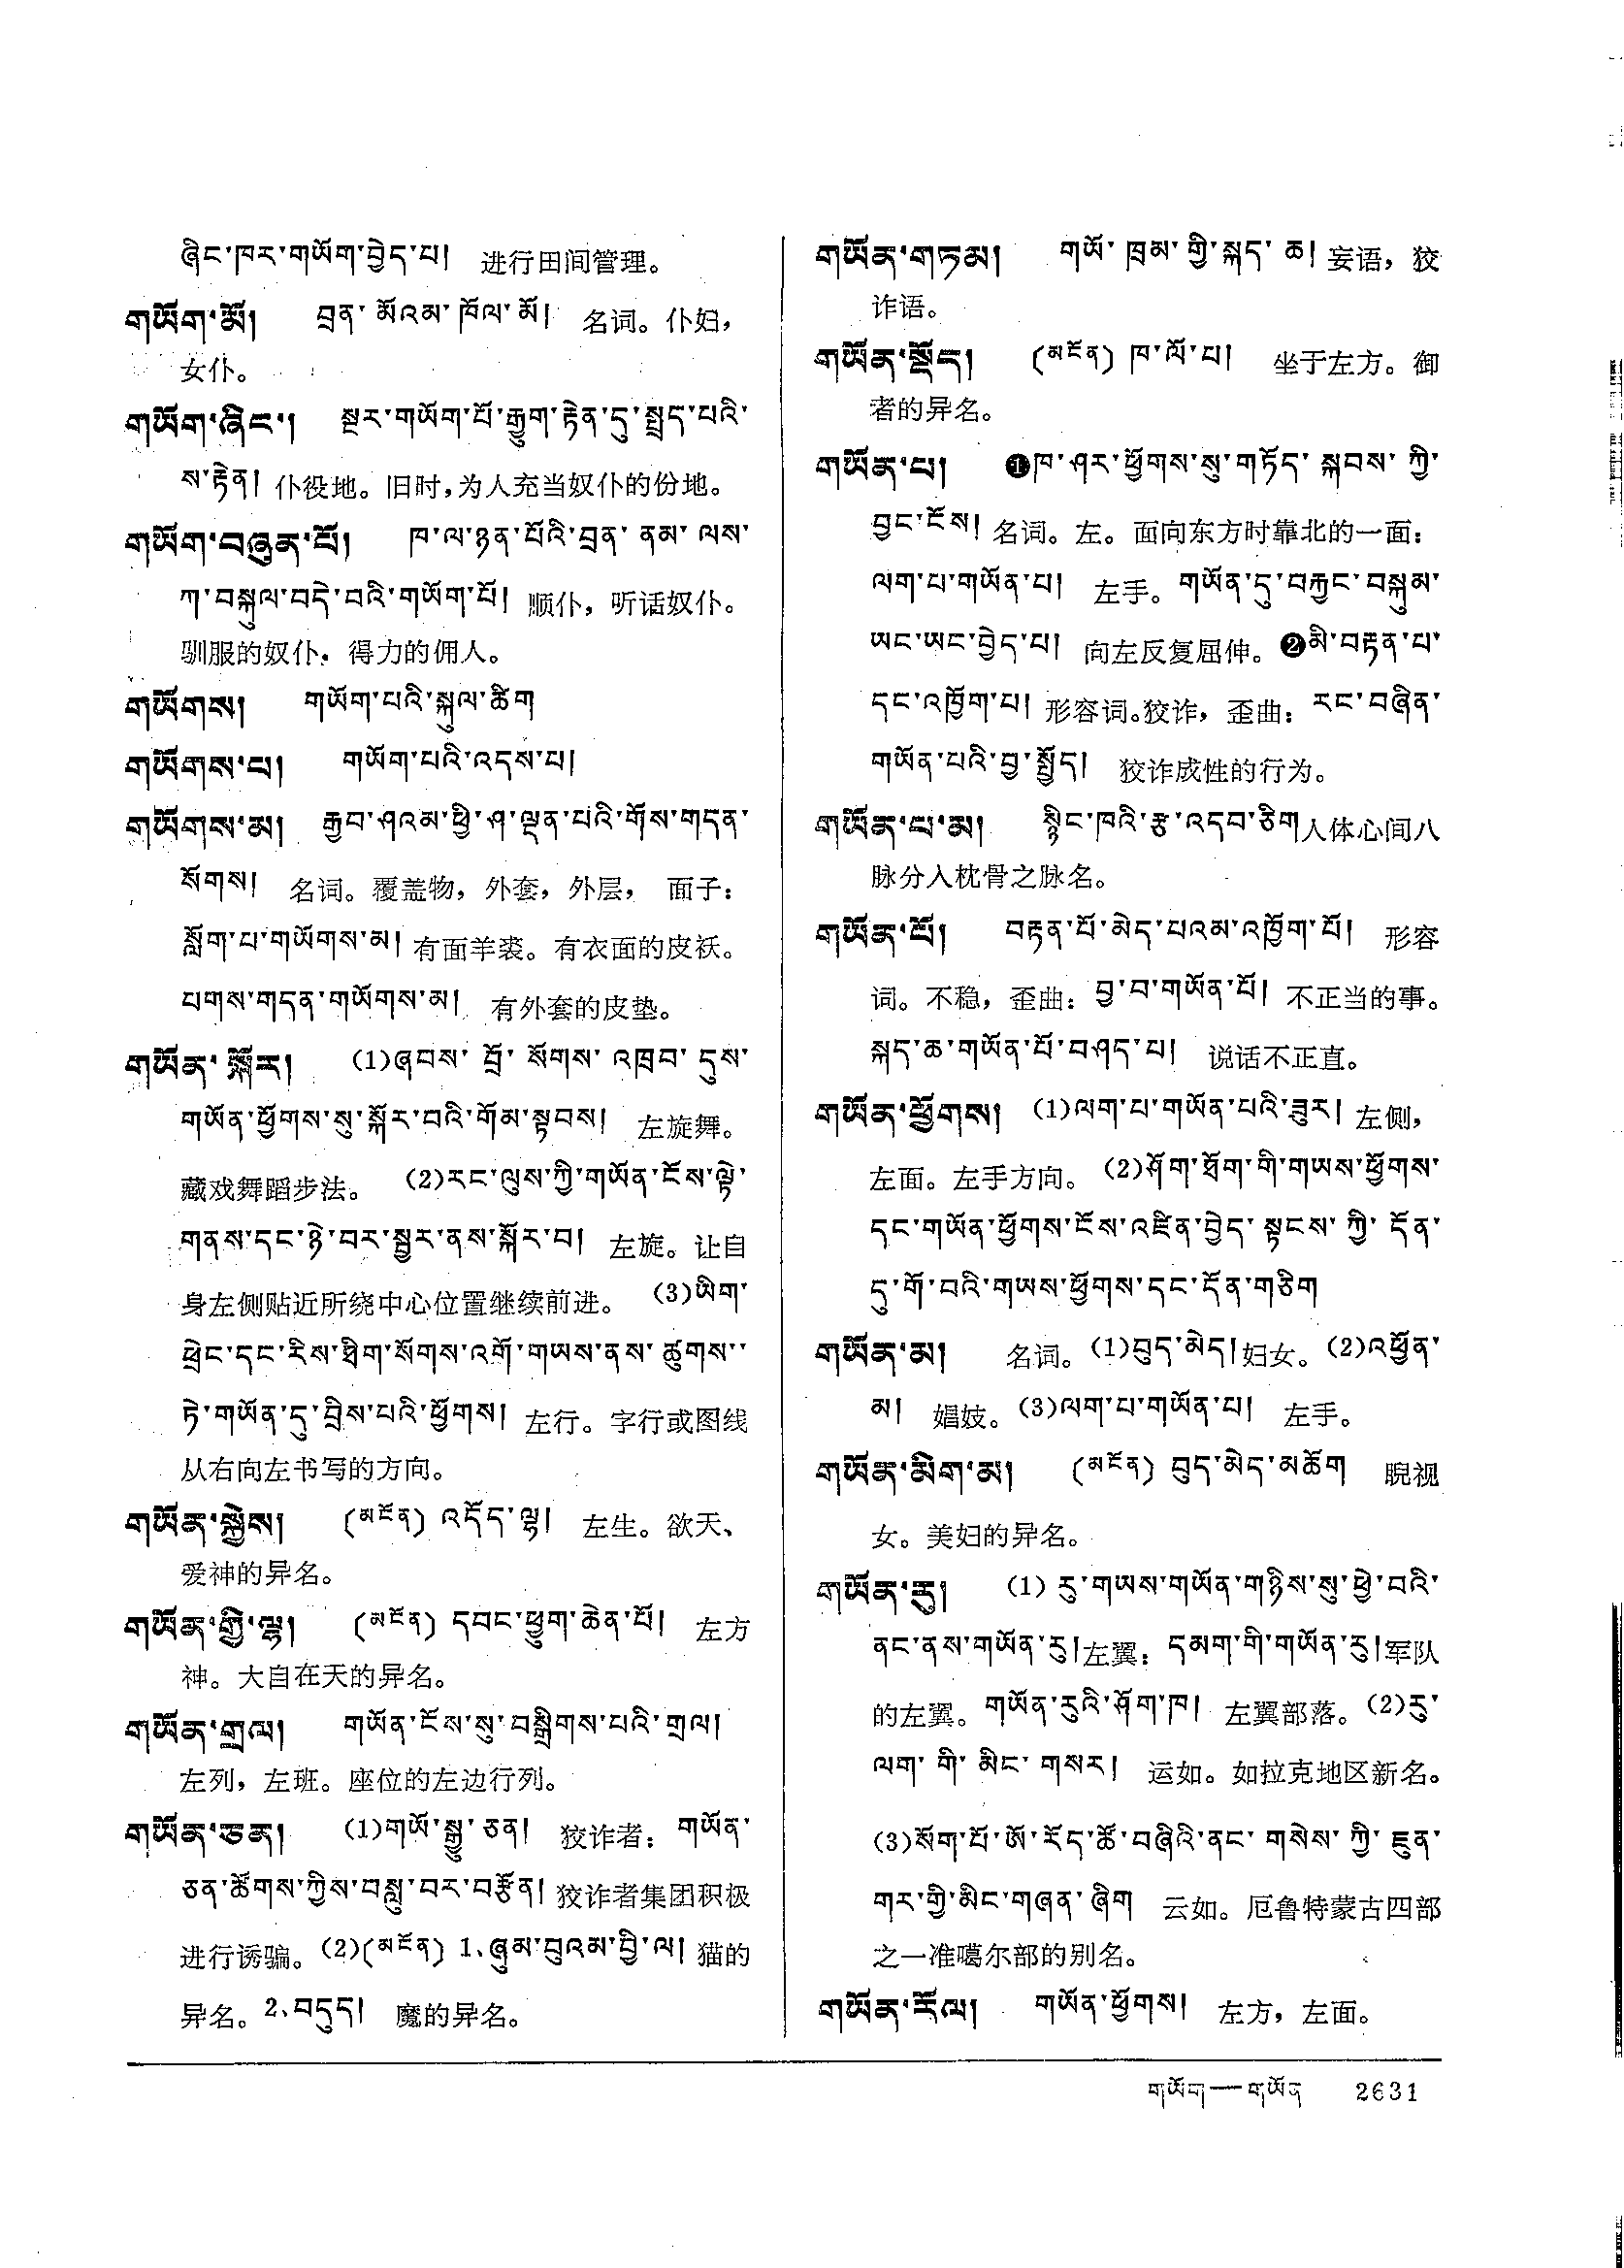 ཞིང་ཁར་གཡོག་བྱེད་པ། 进行田间管理。
གཡོག་མོ། བྲན་མོའམ་ཁོལ་མོ། 名词。仆妇，
女仆。
གཡོག་ཞིང་། སྔར་གཡོག་པོ་རྒྱུག་རྟེན་དུ་སྤྲད་པའི་
ས་རྟེན། 仆役地。旧时，为人充当奴仆的份地。
གཡོག་བཞུན་པོ། ཁ་ལ་ཉན་པོའི་བྲན་ནམ་ལས་
ཀ་བསྐུལ་བདེ་བའི་གཡོག་པོ། 顺仆，听话奴仆。
驯服的奴仆，得力的佣人。
གཡོགས། གཡོག་པའི་སྐུལ་ཚིག
གཡོགས་པ། གཡོག་པའི་འདས་པ།
གཡོགས་མ། རྒྱབ་ཤའམ་ཕྱི་ཤ་ལྡན་པའི་གོས་གདན་
སོགས། 名词。覆盖物，外套，外层， 面子：
སློག་པ་གཡོགས་མ། 有面羊裘。有衣面的皮袄。
པགས་གདན་གཡོགས་མ། 有外套的皮垫。
གཡོན་སྐོར། (1)ཞབས་བྲོ་སོགས་འཁྲབ་དུས་
གཡོན་ཕྱོགས་སུ་སྐོར་བའི་གོམ་སྟབས། 左旋舞。
藏戏舞蹈步法。 (2)རང་ལུས་ཀྱི་གཡོན་ངོས་ལྟེ་
གནས་དང་ཉེ་བར་སྦྱར་ནས་སྐོར་བ། 左旋。让自
身左侧贴近所绕中心位置继续前进。 (3)ཡིག་
ཕྲེང་དང་རིས་ཐིག་སོགས་འགོ་གཡས་ནས་ཚུགས་་
ཏེ་གཡོན་དུ་བྲིས་པའི་ཕྱོགས། 左行。字行或图线
从右向左书写的方向。
གཡོན་སྐྱེས། (མངོན) འདོད་ལྷ། 左生。欲天、
爱神的异名。
གཡོན་གྱི་ལྷ། (མངོན) དབང་ཕྱུག་ཆེན་པོ། 左方
神。大自在天的异名。
གཡོན་གྲལ། གཡོན་ངོས་སུ་བསྒྲིགས་པའི་གྲལ།
左列，左班。座位的左边行列。
གཡོན་ཅན། (1)གཡོ་སྒྱུ་ཅན། 狡诈者： གཡོན་
ཅན་ཚོགས་ཀྱིས་བསླུ་བར་བརྩོན། 狡诈者集团积极
进行诱骗。(2)(མངོན) 1、ཞུམ་བུའམ་བྱི་ལ། 猫的
异名。2、བདུད། 魔的异名。
གཡོན་གཏམ། གཡོ་ཁྲམ་གྱི་སྐད་ཆ། 妄语，狡
诈语。
གཡོན་སྡོད། (མངོན) ཁ་ལོ་པ། 坐于左方。御
者的异名。
གཡོན་པ། ❶ཁ་ཤར་ཕྱོགས་སུ་གཏོད་སྐབས་ཀྱི་
བྱང་ངོས། 名词。左。面向东方时靠北的一面：
ལག་པ་གཡོན་པ། 左手。གཡོན་དུ་བརྐྱང་བསྐུམ་
ཡང་ཡང་བྱེད་པ། 向左反复屈伸。❷མི་བརྟན་པ་
དང་འཁྱོག་པ། 形容词。狡诈，歪曲：རང་བཞིན་
གཡོན་པའི་བྱ་སྤྱོད། 狡诈成性的行为。
གཡོན་པ་མ། སྙིང་ཁའི་རྩ་འདབ་ཅིག 人体心间八
脉分入枕骨之脉名。
གཡོན་པོ། བརྟན་པོ་མེད་པའམ་འཁྱོག་པོ། 形容
词。不稳，歪曲：བྱ་བ་གཡོན་པོ། 不正当的事。
སྐད་ཆ་གཡོན་པོ་བཤད་པ། 说话不正直。
གཡོན་ཕྱོགས། (1)ལག་པ་གཡོན་པའི་ཟུར། 左侧，
左面。左手方向。(2)ཤོག་ཐོག་གི་གཡས་ཕྱོགས་
དང་གཡོན་ཕྱོགས་ངོས་འཛིན་བྱེད་སྟངས་ཀྱི་དོན་
དུ་གོ་བའི་གཡས་ཕྱོགས་དང་དོན་གཅིག
གཡོན་མ། 名词。(1)བུད་མེད། 妇女。(2)འཕྱོན་
མ། 娼妓。(3)ལག་པ་གཡོན་པ། 左手。
གཡོན་མིག་མ། (མངོན) བུད་མེད་མཆོག 睨视
女。美妇的异名。
གཡོན་རུ། (1) རུ་གཡས་གཡོན་གཉིས་སུ་ཕྱེ་བའི་
ནང་ནས་གཡོན་རུ། 左翼：དམག་གི་གཡོན་རུ། 军队
的左翼。གཡོན་རུའི་ཤོག་ཁ། 左翼部落。(2)རུ་
ལག་གི་མིང་གསར། 运如。如拉克地区新名。
(3)སོག་པོ་ཨོ་རོད་ཚོ་བཞིའི་ནང་གསེས་ཀྱི་ཇུན་
གར་གྱི་མིང་གཞན་ཞིག 云如。厄鲁特蒙古四部
之一准噶尔部的别名。
གཡོན་རོལ། གཡོན་ཕྱོགས། 左方，左面。
གཡོག—གཡོན 2631